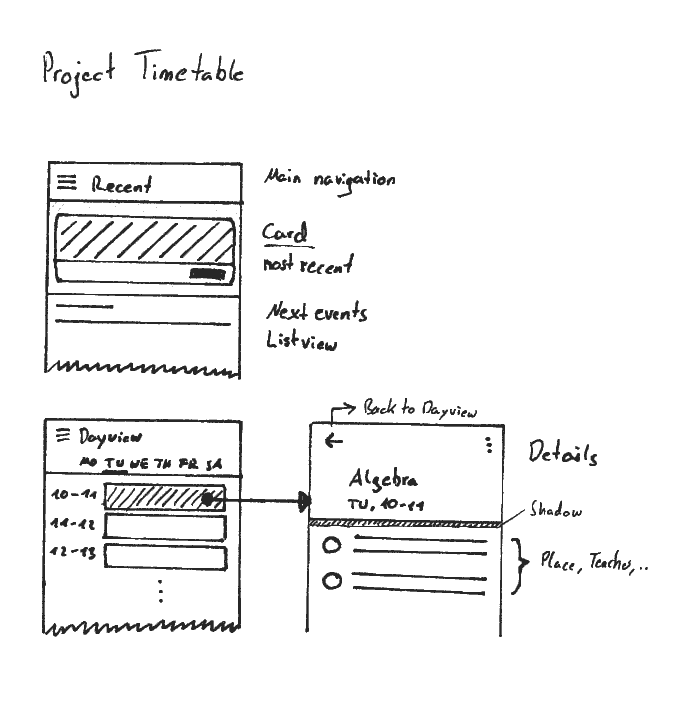 Project Timetable
Recent
Main navigation
Card
most recent
Next events
Listview
Back to Dayview
Dayview
MO TU WE TH FR SA
10-11
11-12
12-13
Algebra
TU, 10-11
Details
Shadow
Place, Teacher,..